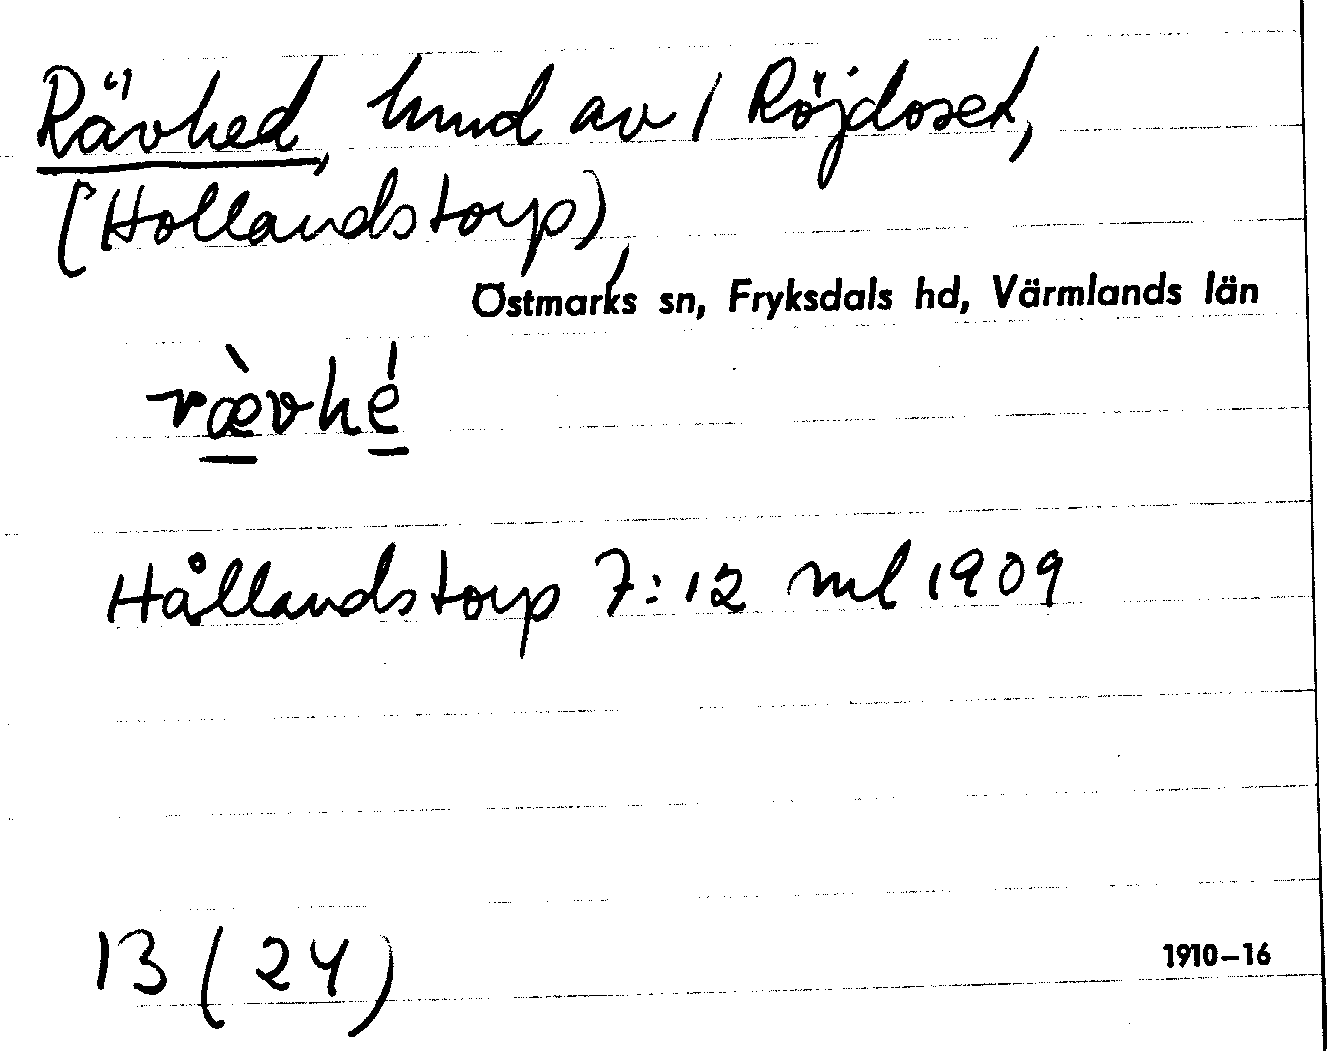 Rävhed, hmd av 1 Röjdoset,
(Hollandstorp),
Östmarks sn, Fryksdals hd, Värmlands län
rævhé
Hållandstorp 7:12 ml 1909
13 (24)
1910–16